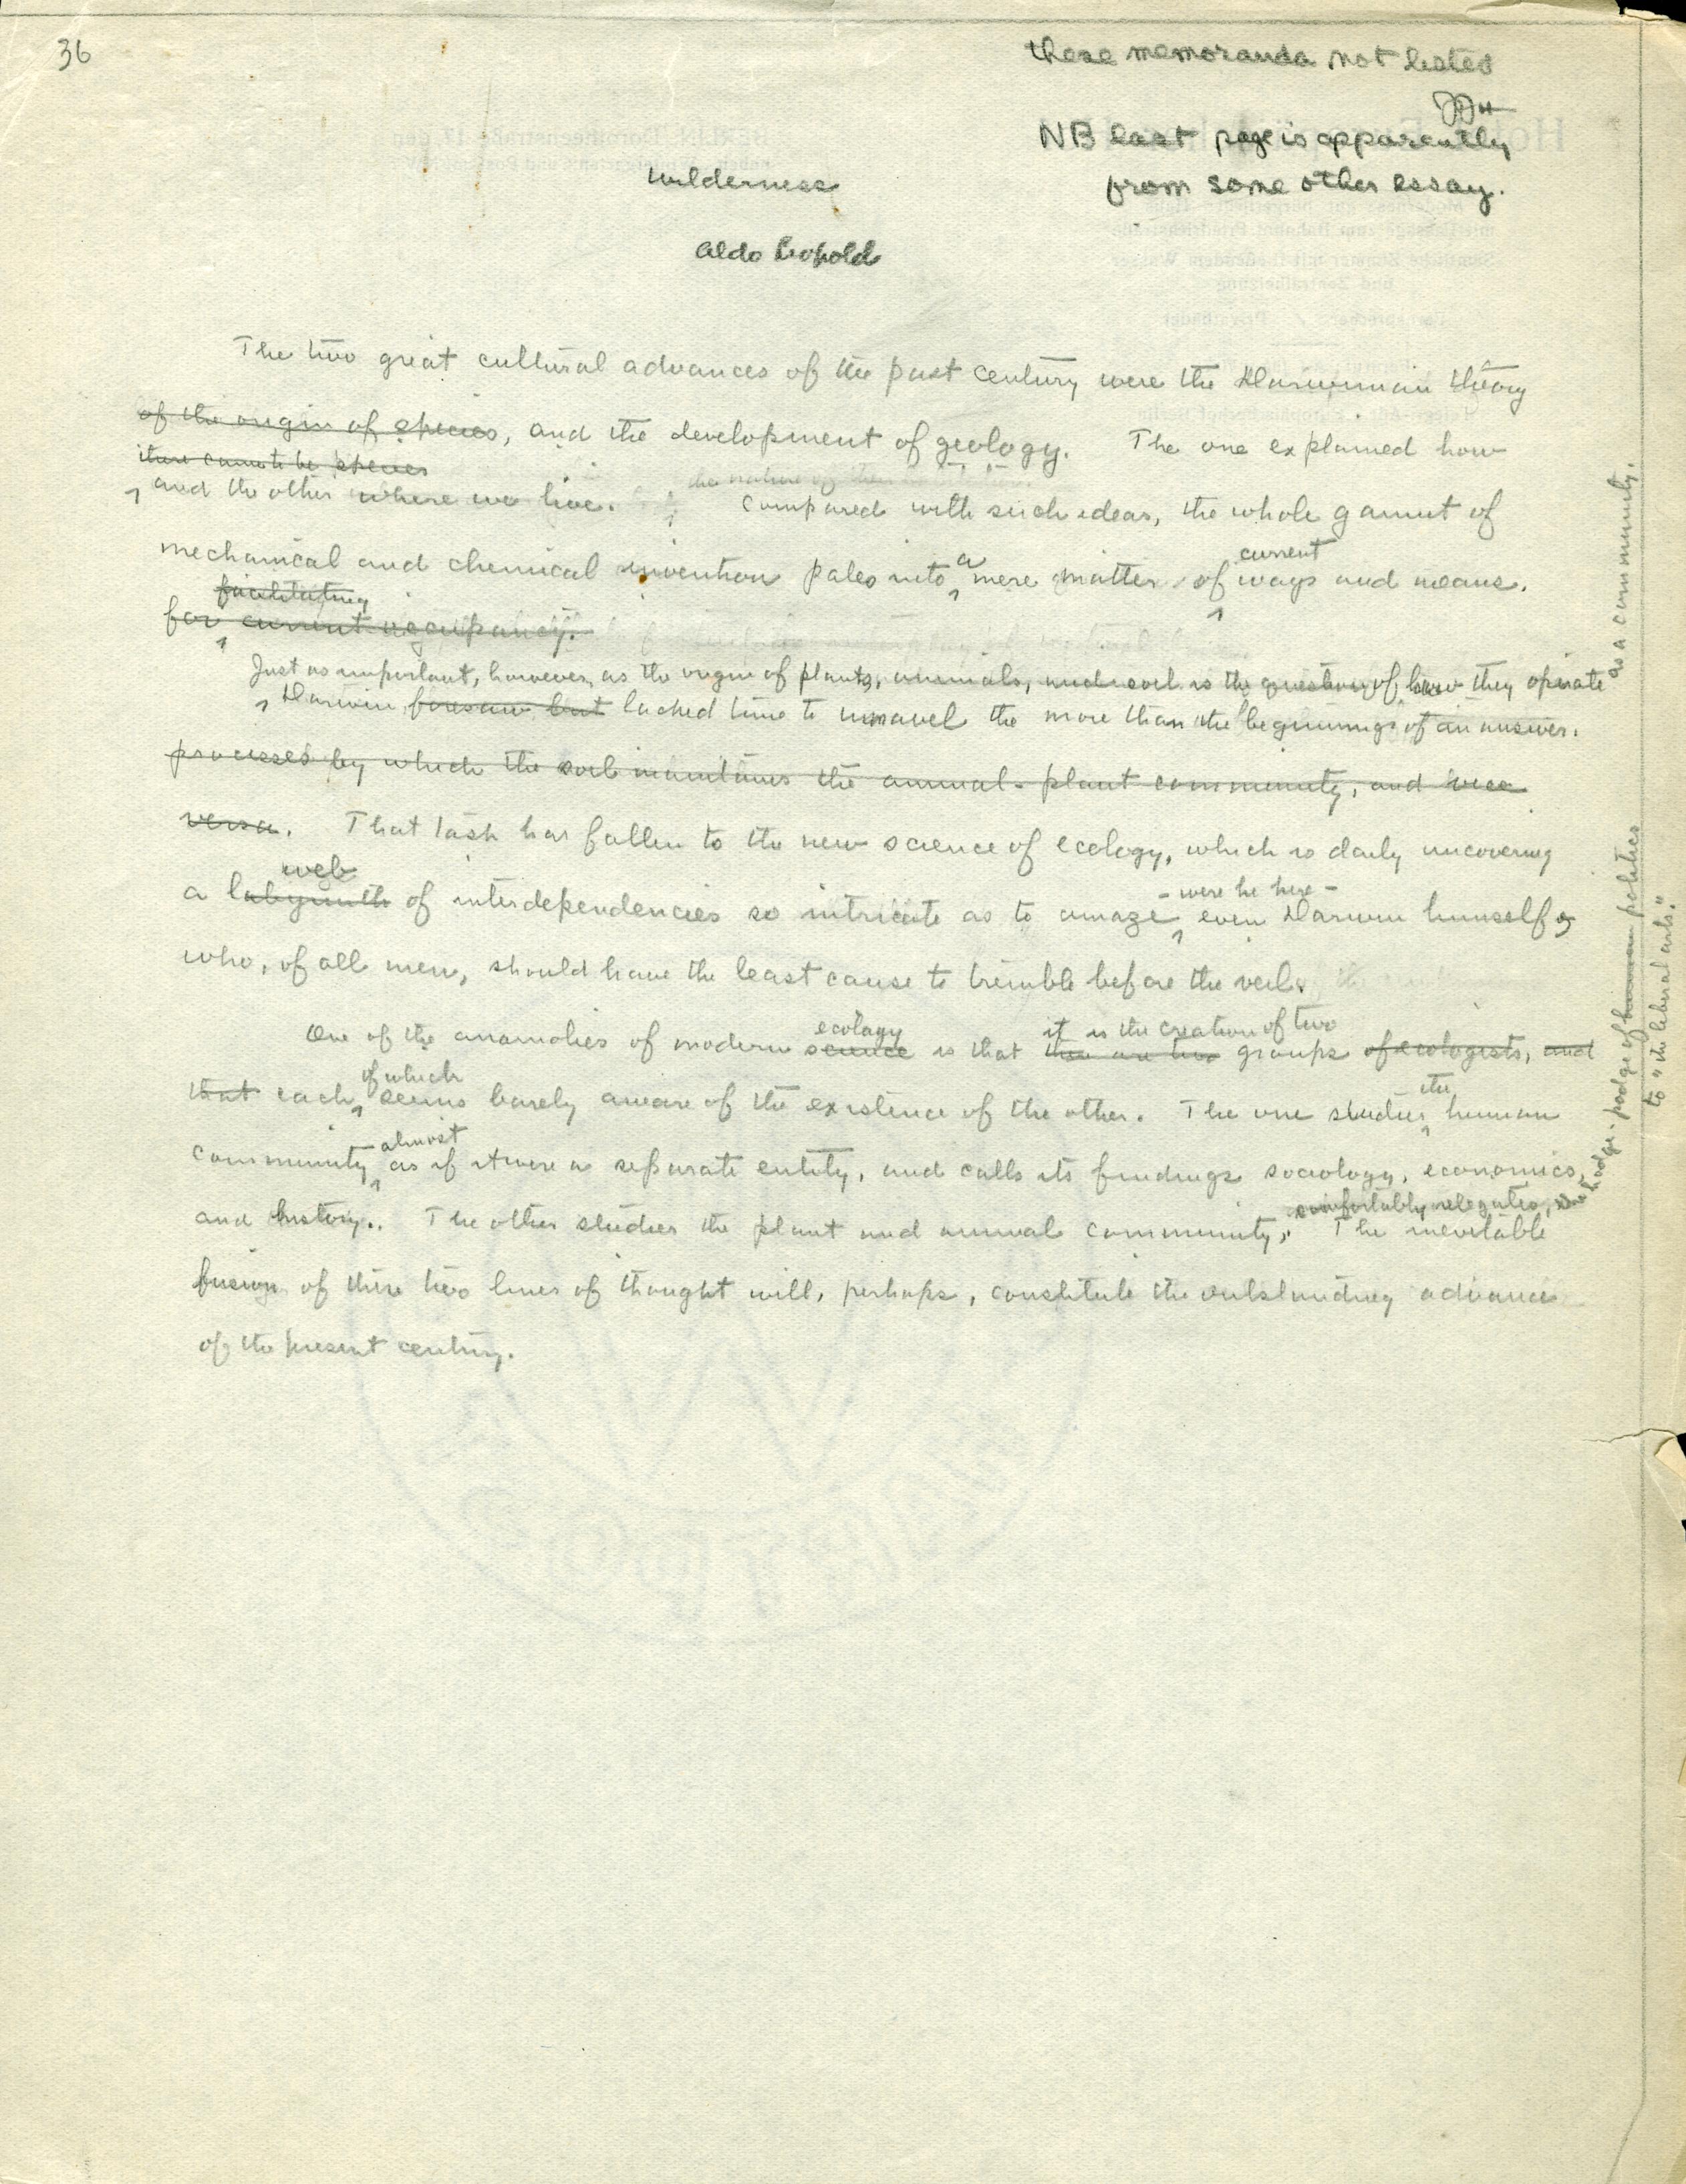 36
these memoranda not listed
NB last page is apparently
from some other essay.
Wilderness
Aldo Leopold
The two great cultural advances of the past century were the Darwinian theory
of the origin of species, and the development of geology. The one explained how
and the other where we live. Compared with such ideas, the whole gamut of
a
current
mechanical and chemical invention pales into mere matter of ways and means.
facilitating
for current occupancy.
Just as important, however, as the origin of plants, animals, and soil is the question of how they operate
as a community.
Darwin foresaw but lacked time to unravel the more than the beginnings of an answer.
processes by which the soil maintains the animal-plant community, and vice
versa. That task has fallen to the new science of ecology, which is daily uncovering
web
- were he here -
a labyrinth of interdependencies so intricate as to amaze even Darwin himself,
who, of all men, should have the least cause to tremble before the veil.
ecology
it is the creation of two
One of the anomalies of modern science is that there are two groups of ecologists, and
of which
the
that each seems barely aware of the existence of the other. The one studies human
almost
community as if it were a separate entity, and calls its findings sociology, economics,
and history. The other studies the plant and animal community,
comfortably relegates the hodge-podge of human politics
to "the liberal arts."
The inevitable
fusion of these two lines of thought will, perhaps, constitute the outstanding advance
of the present century.